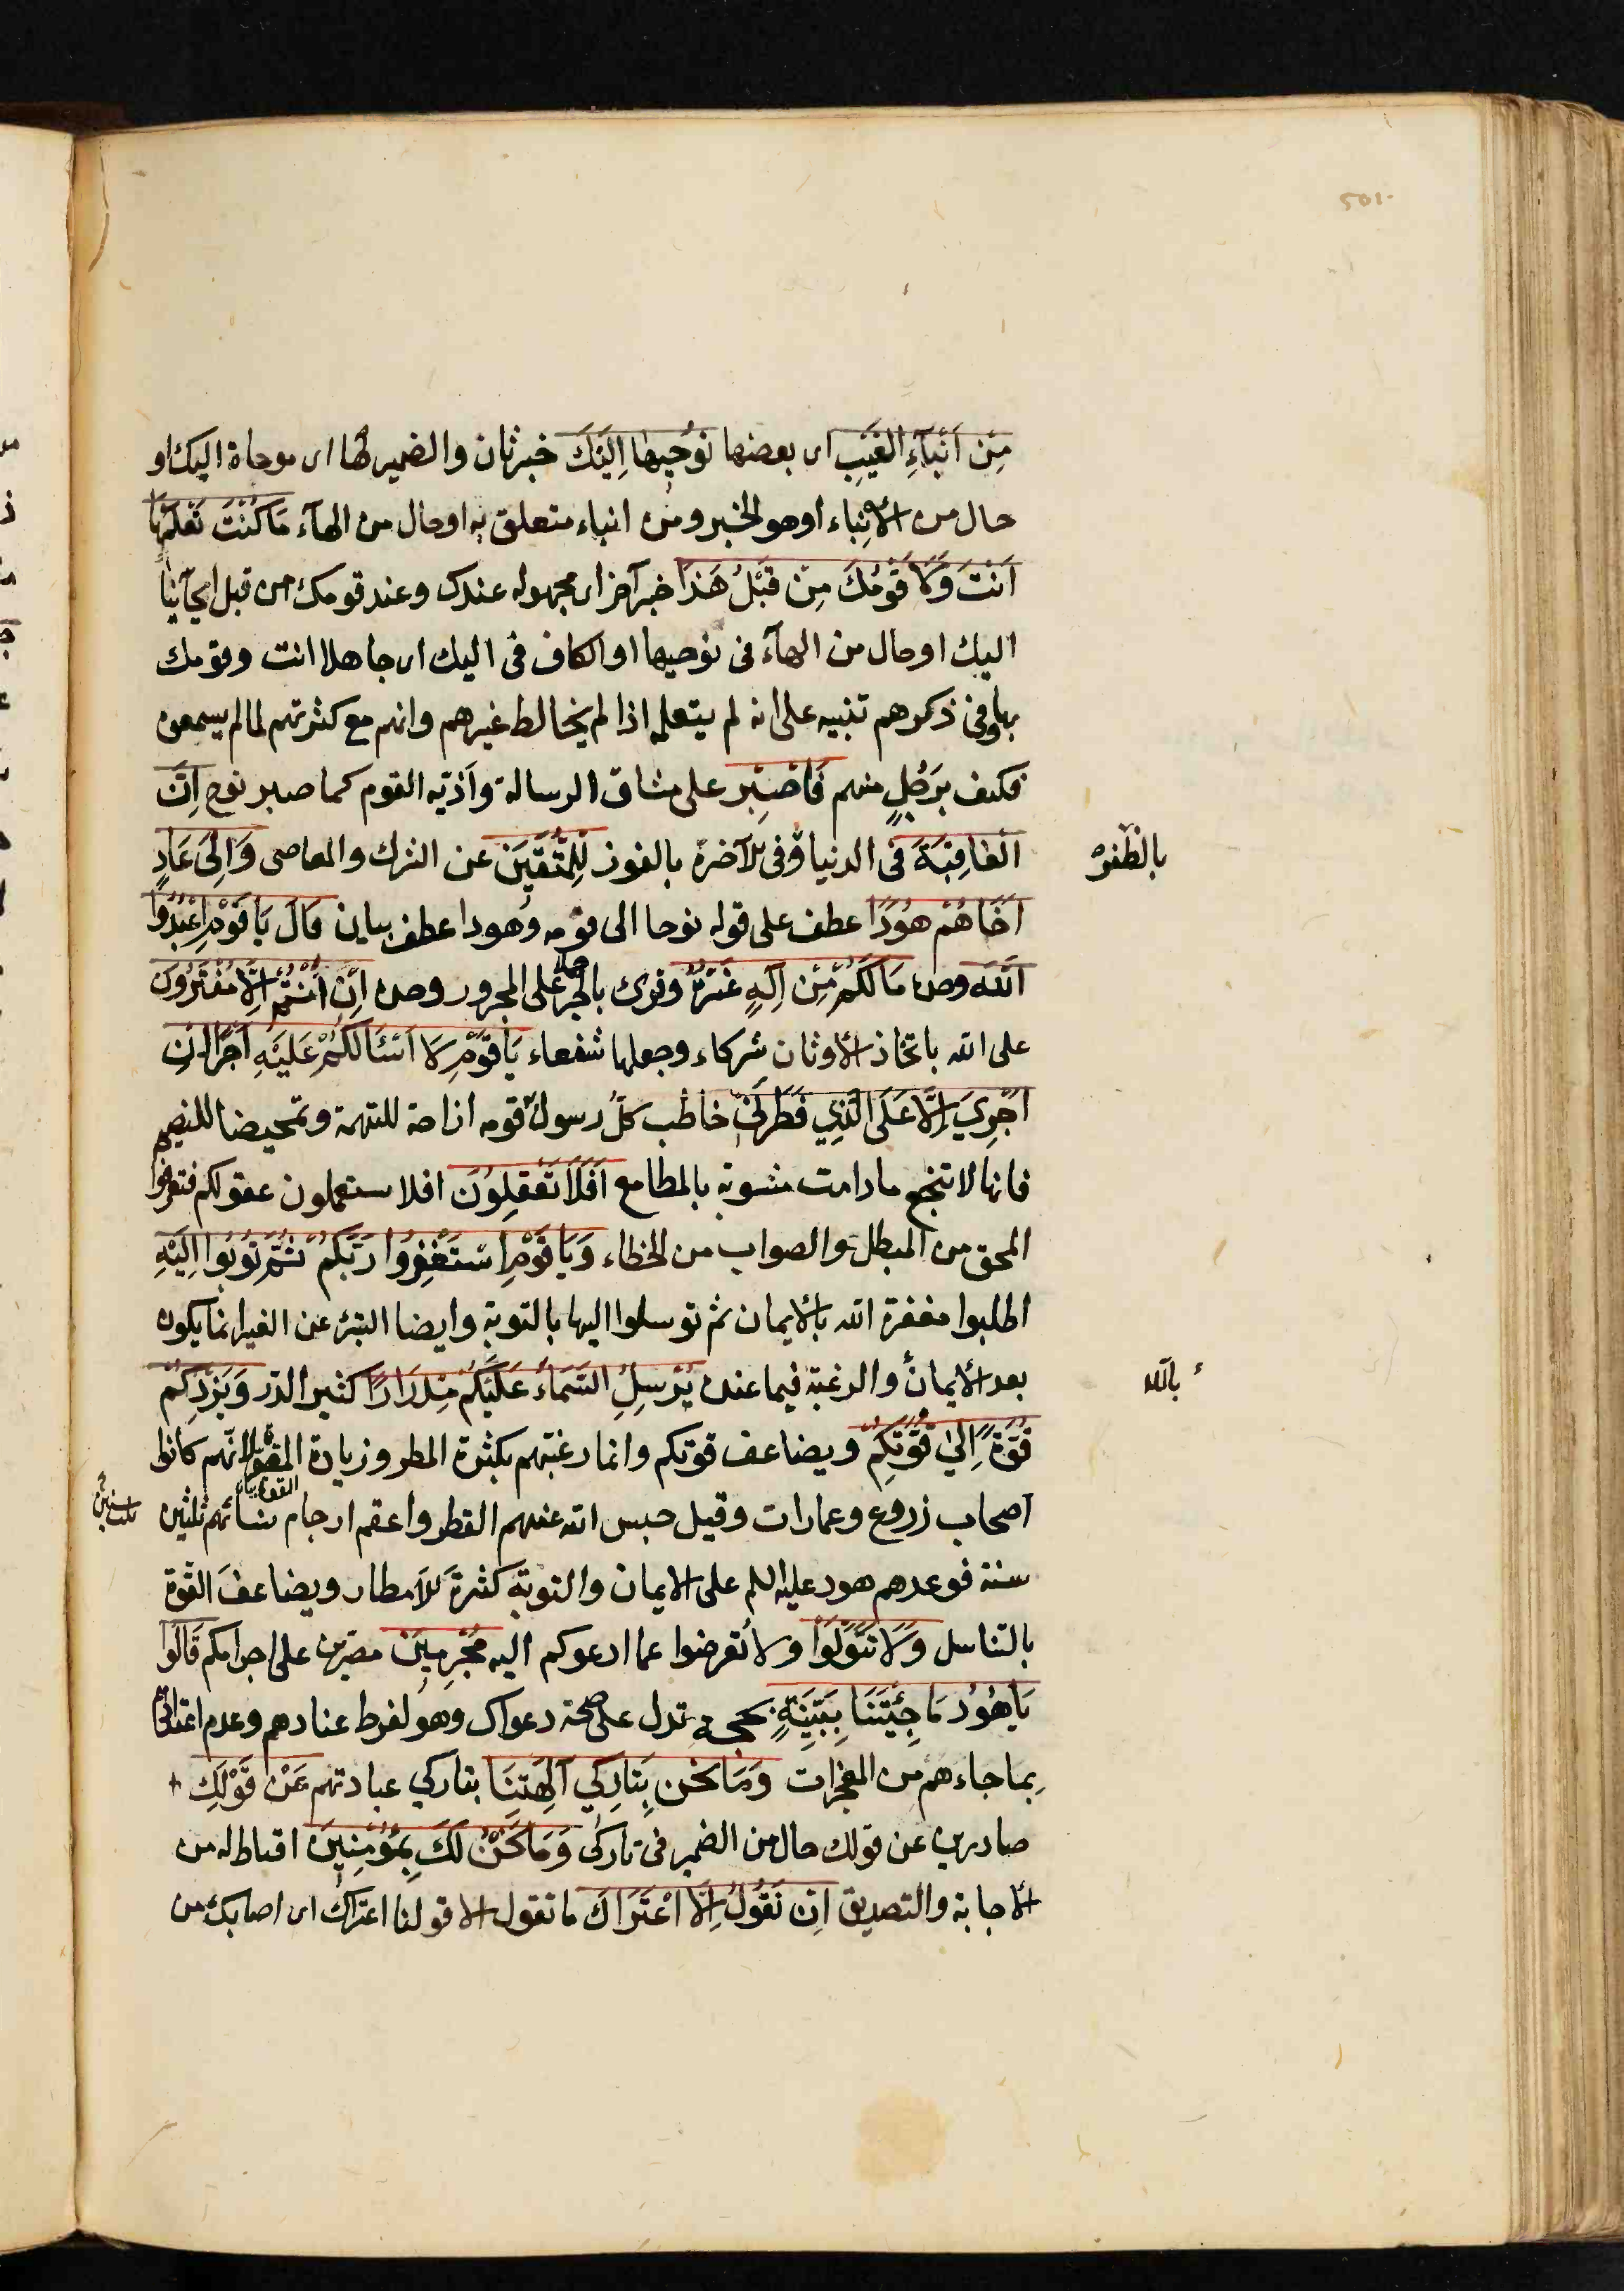 501
مِنْ اَنْبَآءِ الْغَيْبِ اى بعضها نُوحِيهَا اِلَيْكَ خبر ثان والضمير لها اى موحاة اليك او
حال من الانباء او هو الخبر ومن انباء متعلق به او حال من الهآء مَا كُنْتَ تَعْلَمُهَا
اَنْتَ وَلَا قَوْمُكَ مِنْ قَبْلِ هَذَا خبر آخر اى مجهولة عندك وعند قومك من قبل ايحآئنا
اليك او حال من الهآء فى نوحيها او الكاف فى اليك اى جاهلا انت وقومك
بها وفى ذكرهم تنبيه على انه لم يتعلمه اذا لم يخالط غيرهم وانهم مع كثرتهم لما لم يسمعوه
فكيف برَجُلٍ منهم فَاصْبِرْ على مشاق الرسالة واَذيّه القوم كما صبر نوح اِنَّ
الْعَاقِبَةَ فى الدنيا وفى الآخرة بالفوز لِلْمُتَّقِيَنَ عن الشرك والمعاصى وَاِلَى عَادٍ
بالظفر
اَخَاهُمْ هُودًا عطف على قوله نوحا الى قومه وهودا عطف بيان قَالَ يَا قَوْمِ اعْبُدُوا
اللهَ وحده مَا لَكُمْ مِنْ اِلَهٍ غَيْرُهُ وقرئ بالجر حملا على المجرور وحده اِنْ اَنْتُمْ اِلَّا مُفْتَرُونَ
على الله باتخاذ الاوثان شركاء وجعلها شفعاء يَا قَوْمِ لَا اَسْئَالُكُمْ عَلَيْهِ اَجْرًا اِنْ
اَجْرِيَ اِلَّا عَلَى الَّذِي فَطَرَنِي خاطب كلُّ رسول قومه ازاحة للتهمة وتمحيضا للنصيحة
فانها لا تنجع ما دامت مشوبة بالمطامع اَفَلَا تَعْقِلُونَ افلا تستعملون عقولكم فتعرفوا
المحق من المبطل والصواب من الخطاء وَيَا قَوْمِ اسْتَغْفِرُوا رَبَّكُمْ ثُمَّ تُوبُوا اِلَيْهِ
اطلبوا مغفرة الله بالايمان ثم توسلوا اليها بالتوبة وايضا التبرئ عن الغير انما يكون
بعد الايمان والرغبة فيما عنده يُرْسِلِ السَّمَاءَ عَلَيْكُمْ مِدْرَارًا كثير الدّر وَيَزِدْكُمْ
بالله
قُوَّةً اِلى قُوَّتِكُمْ ويضاعف قوتكم وانما رغبهم بكثرة المطر وزيادة القوة لانّهم كانوا
اصحاب زروع وعمارات وقيل حبس الله عنهم القطر واعقم ارحام نسائهم ثلثين
سنة فوعدهم هود عليه السلم على الايمان والتوبة كثرة الامطار ويضاعفَ القوة
بالتناسل وَلَا تَتَوَلَّوْا ولا تُعرضوا عما ادعوكم اليه مُجْرِمِينَ مصرّين على اجرامكم قَالُوا
يَا هُودُ مَا جِئْتَنَا بِبَيِّنَةٍ بحجة تدل على صحة دعواك وهو لفرط عنادهم وعدم اعتدادهم
بِما جاءهم من المعجزات وَمَا نَحْن بِتَارِكِي آلِهَتِنَا بتاركي عبادتهم عَنْ قَوْلِكِ
صادرين عن قولك حال من الضمير فى تاركى وَمَا نَحْنُ لَكَ بِمُؤْمِنِينَ اقناط له من
الاجابة والتصديق اِنْ نَقُولُ اِلَّا اعْتَرَاكَ ما نقول الا قولنا اعتراك اى اصابك من